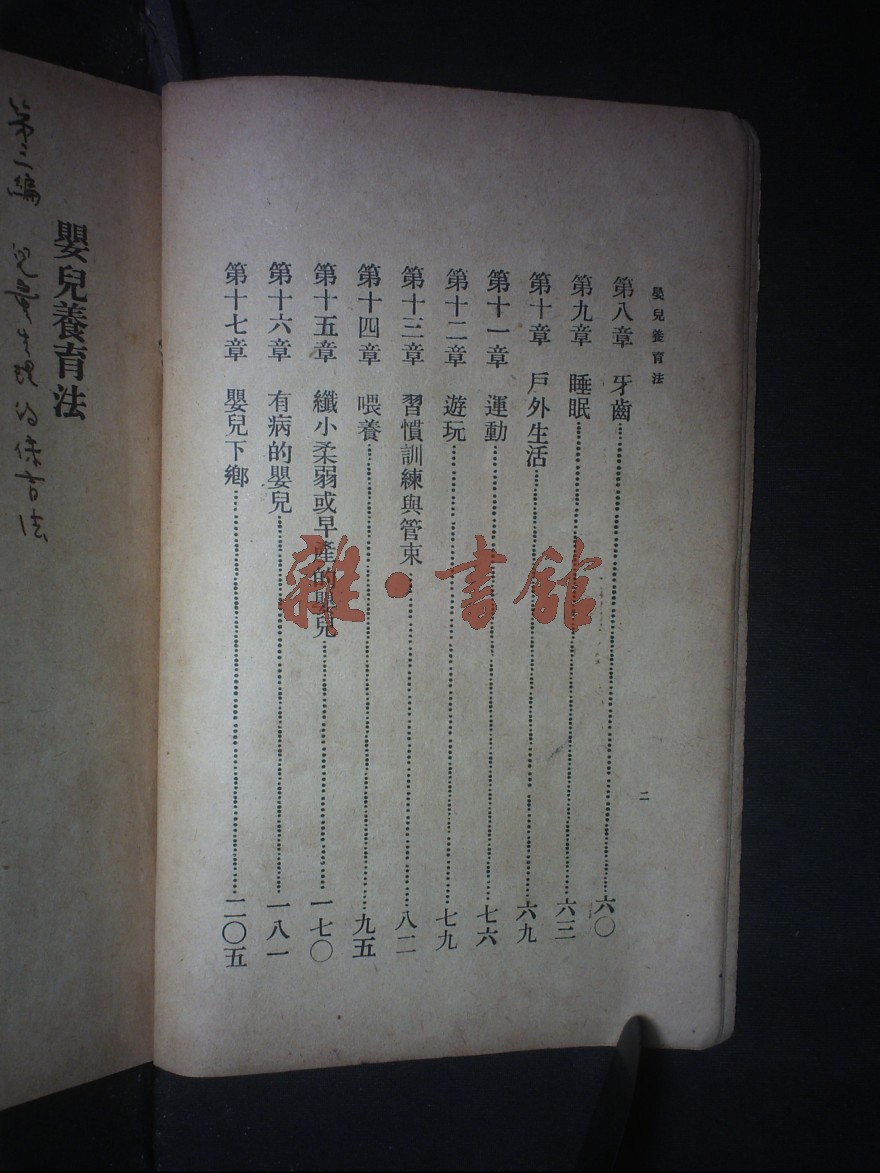 嬰兒養育法
第八章　牙齒……六〇
第九章　睡眠……六三
第十章　戶外生活……六九
第十一章　運動……七六
第十二章　遊玩……七九
第十三章　習慣訓練與管束……八二
第十四章　喂養……九五
第十五章　纖小柔弱或早產的嬰兒……一七〇
第十六章　有病的嬰兒……一八一
第十七章　嬰兒下鄉……二〇五
二
雜·書館
嬰兒養育法
第三編　兒童生理的保育法